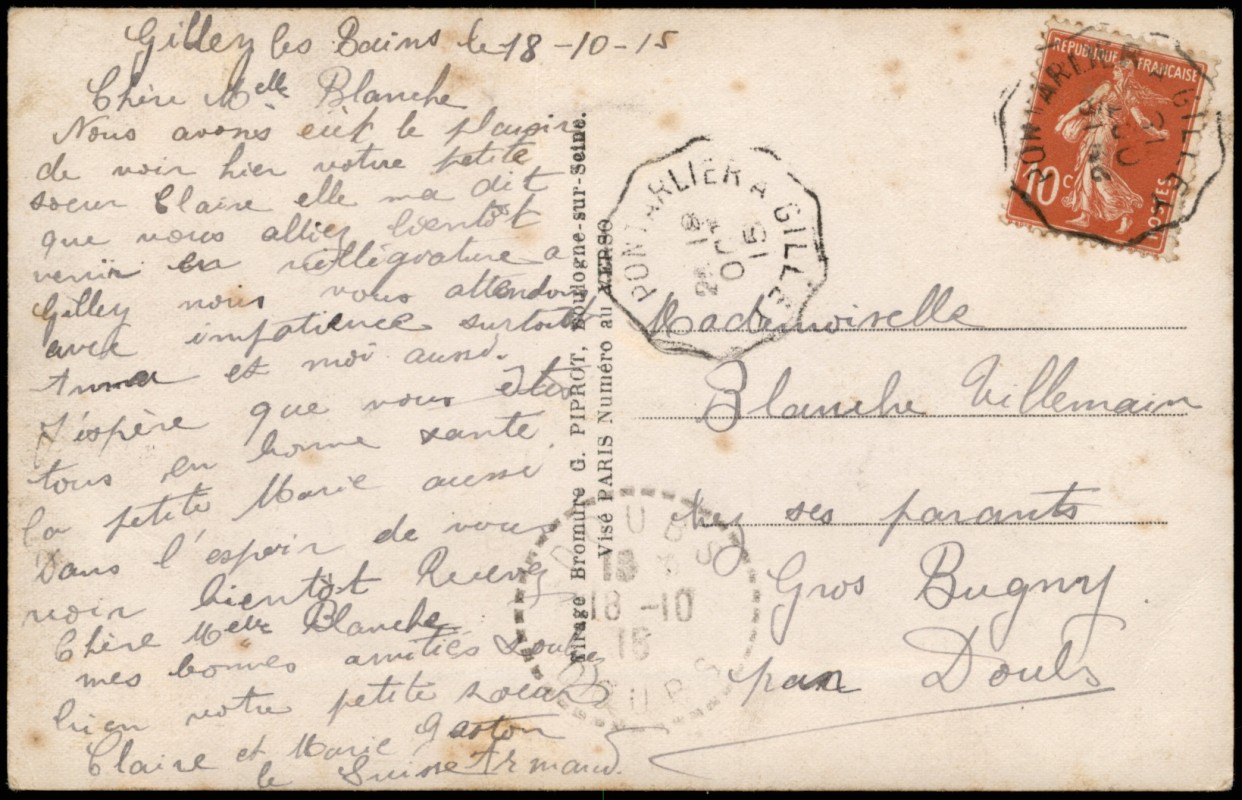 Gilley les Bains le 18-10-15
Chère Melle Blanche
Nous avons eût le plaisire
de voir hier votre petite
soeur Claire elle ma dit
que vous alliez bientôt
venir en villégiature a
Gilley nous vous attendons
avec impatience surtout
et moi aussi.
J'espère que vous êtes
tous en bonne santé.
la petite Marie aussi
Dans l'espoir de vous
voir bientôt Recevez
Chère Melle Blanche
mes bonnes amitiés
bien votre petite soeur
Claire et Marie Gaston
le Suisse Armand.
Tirage Bromure G. PIPROT, Boulogne-sur-Seine.
Visé PARIS Numéro au VERSO
PONTARLIER A GILLEY
2E 18
OCT
15
RÉPUBLIQUE FRANÇAISE
10c
POSTES
PONTARLIER A GILLEY
2E 18
OCT
15
Mademoiselle
Blanche Villemain
chez ses parants
Gros Bugny
par Doubs
DOUBS
18-10
15
DOUBS